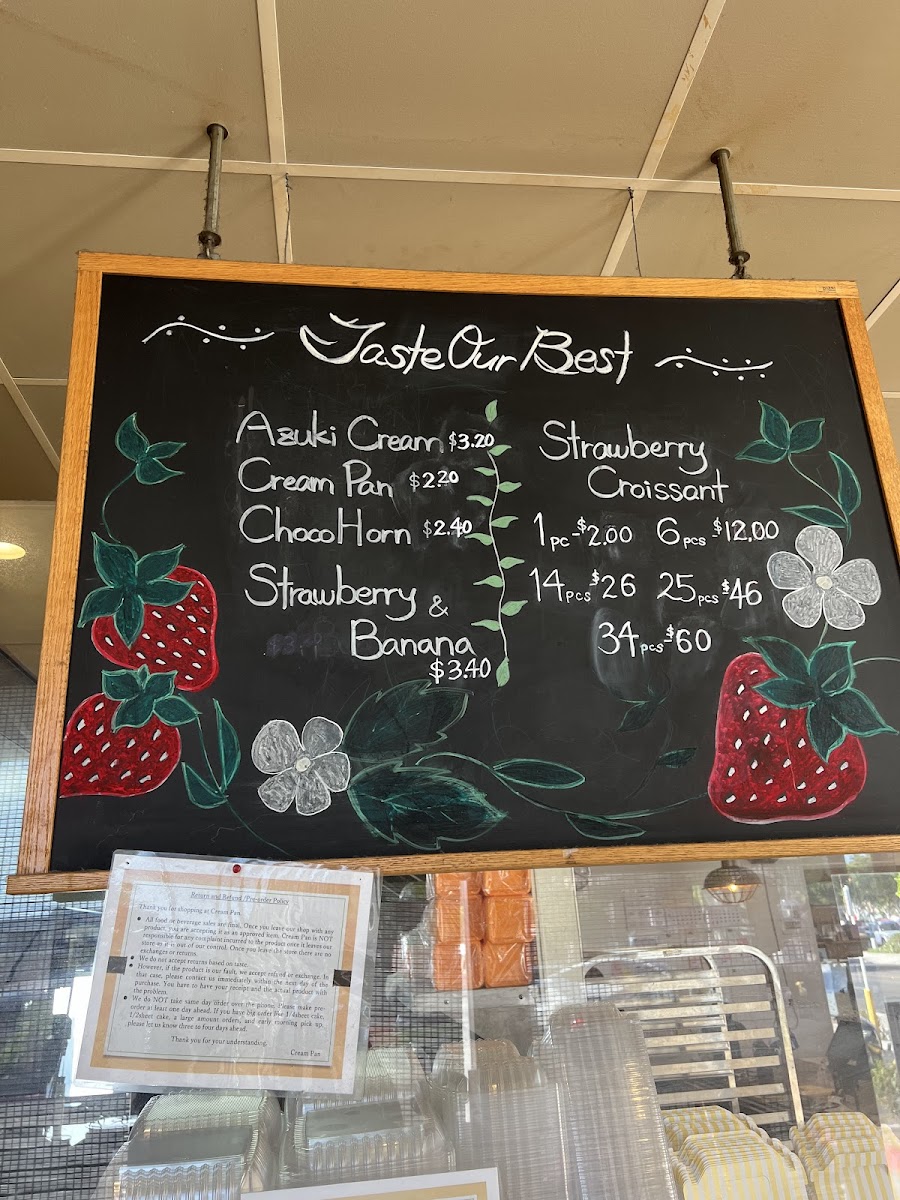 Taste Our Best
Azuki Cream $3.20
Cream Pan $2.20
Choco Horn $2.40
Strawberry &
Banana
$3.40
Strawberry
Croissant
1pc-$2.00 6pcs $12.00
14pcs $26 25pcs $46
34pcs $60
Return and Refund /Pre-order Policy
Thank you for shopping at Cream Pan.
All food or beverage sales are final. Once you leave our shop with any
product, you are accepting it as an approved item. Cream Pan is NOT
responsible for any complaint incurred to the product once it leaves our
store as it is out of our control. Once you leave the store there are no
exchanges or returns.
We do not accept returns based on taste.
However, if the product is our fault, we accept refund or exchange. In
that case, please contact us immediately within the next day of the
purchase. You have to have your receipt and the actual product with
the problem.
We do NOT take same day order over the phone. Please make pre-
order at least one day ahead. If you have big order like 1/4sheet cake,
1/2sheet cake, a large amount orders, and early morning pick up,
please let us know three to four days ahead.
Thank you for your understanding.
Cream Pan